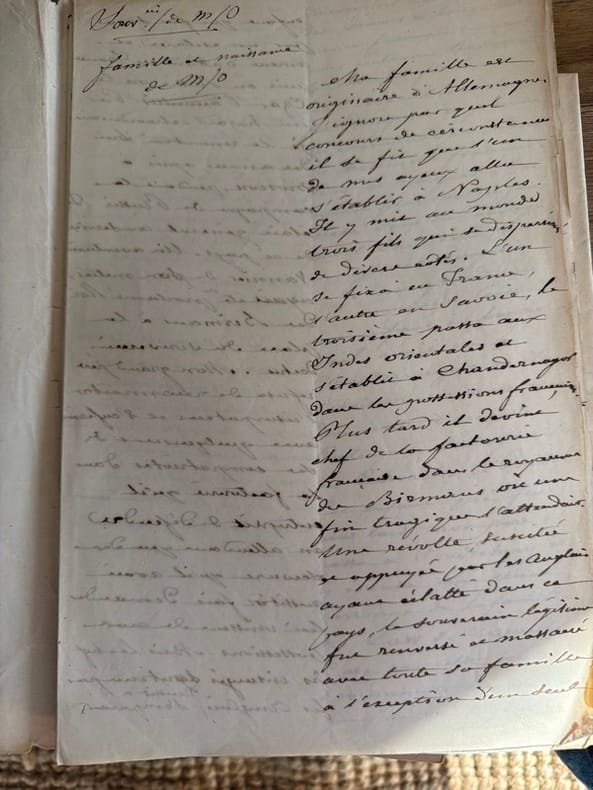 Souv.ni / de M/O
famille et naissance
de M/O
Ma famille est
originaire d'Allemagne.
J'ignore par quel
concours de circonstances
il se fit que l'un
de mes ayeux alla
s'établir à Naples.
Il y mit au monde
trois fils qui se dispersèrent
de divers cotés. L'un
se fixa en France,
l'autre en Savoie, le
troisième passa aux
Indes orientales et
s'établit à Chandernagor
dans les possessions françaises.
Plus tard il devint
chef de la factorerie
française dans le royaume
de Birmans où une
fin tragique l'attendait.
Une révolte suscitée
et appuyée par les Anglais
ayant éclatté dans ce
pays, le souverain légitime
fut renversé et massacré
avec toute sa famille
à l'exception d'un seul